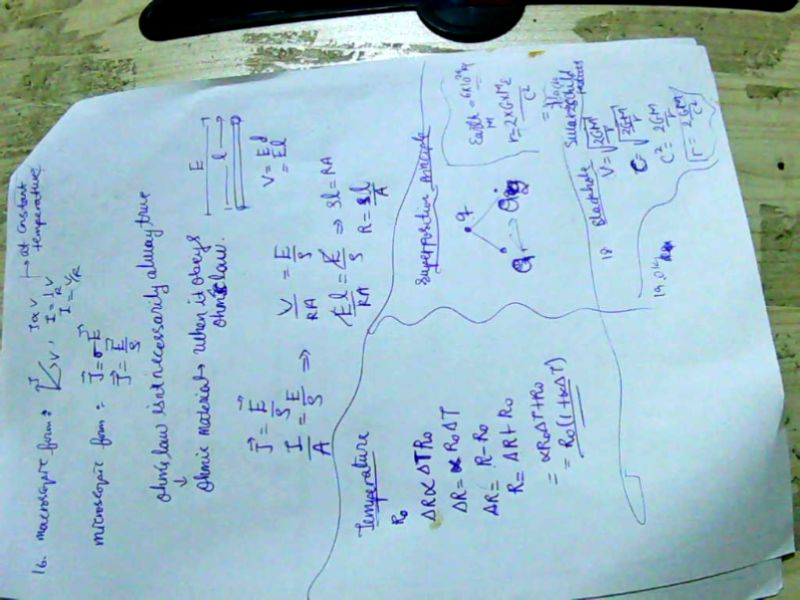 16. macroscopic form: I V, I ∝ V → at constant temperature
I = 1/R V
I = V/R
microscopic form: J = σE
J = E/ρ
ohm's law isn't necessarily always true
↓
Ohmic material → when it obeys
ohm's law.
E
l
V = El
= El
J = E/ρ
I/A = E/ρ ⇒ V/RA = E/ρ
El/RA = E/ρ ⇒ ρl = RA
R = ρl/A
Temperature
R₀
ΔR ∝ ΔT R₀
ΔR = ∝ R₀ ΔT
ΔR = R - R₀
R = ΔR + R₀
= ∝R₀ΔT + R₀
= R₀(1 + ∝ΔT)
Superposition principle
q
Q
Earth = 6×10²⁴kg
M
r = 2×G×M
C²
18 Blackhole
V = √2GM/r
C = √2GM/r
C² = 2GM/r
r = 2GM/C²
19.